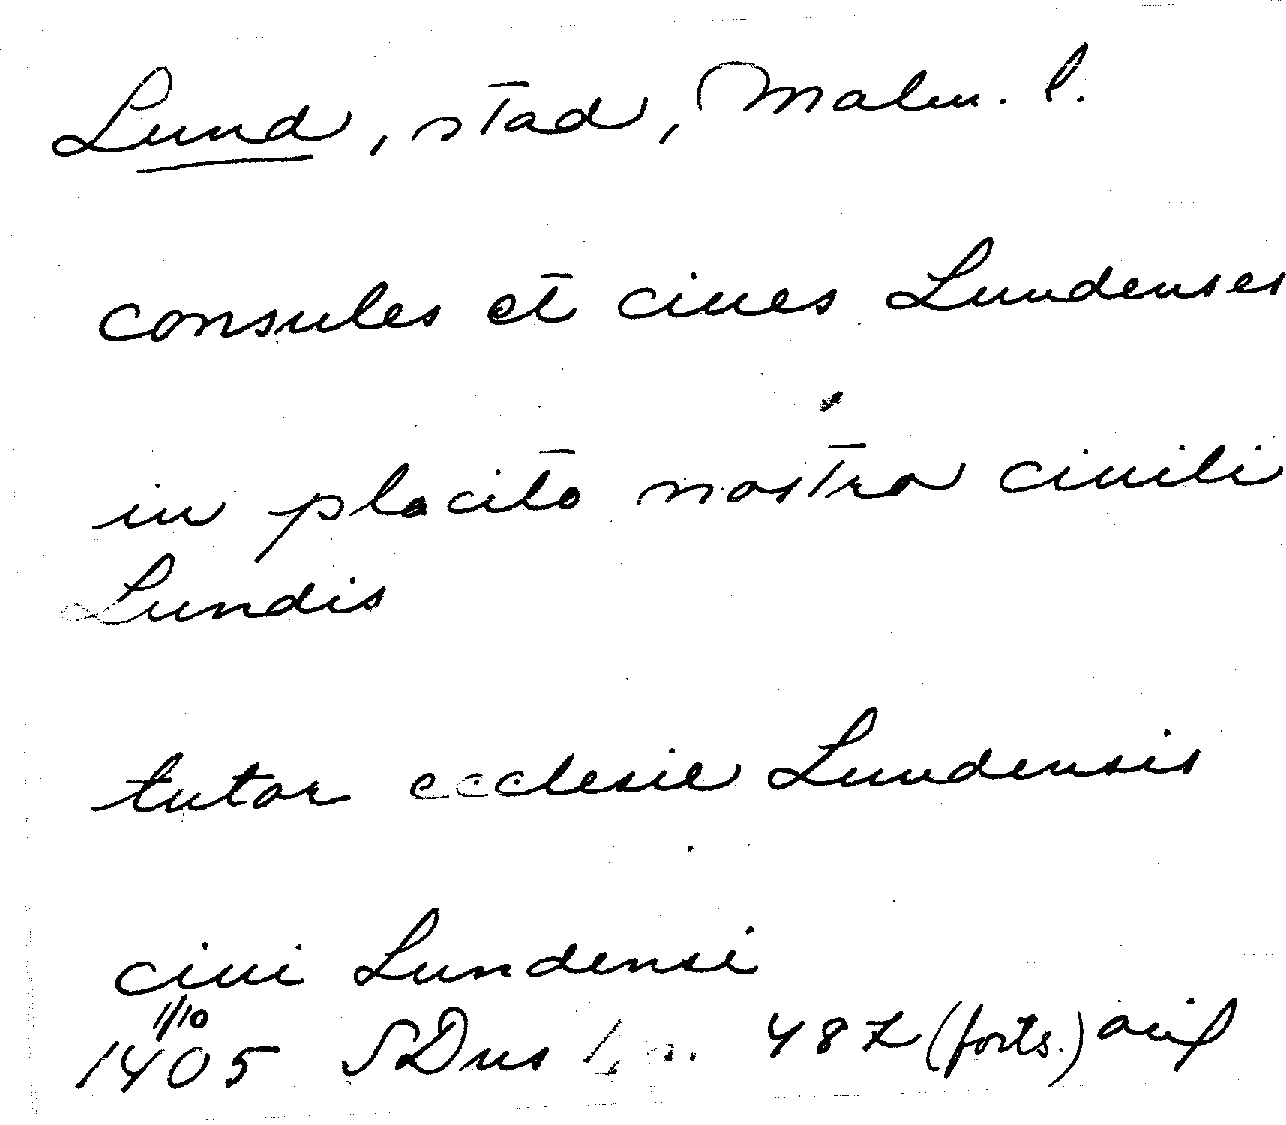 Lund, stad, Malm. l.
consules et ciues Lundenses
in placito nostro ciuili
Lundis
tutor ecclesie Lundensis
ciui Lundensi
1/10
1405 SDns 1, n. 487 (forts.) avs